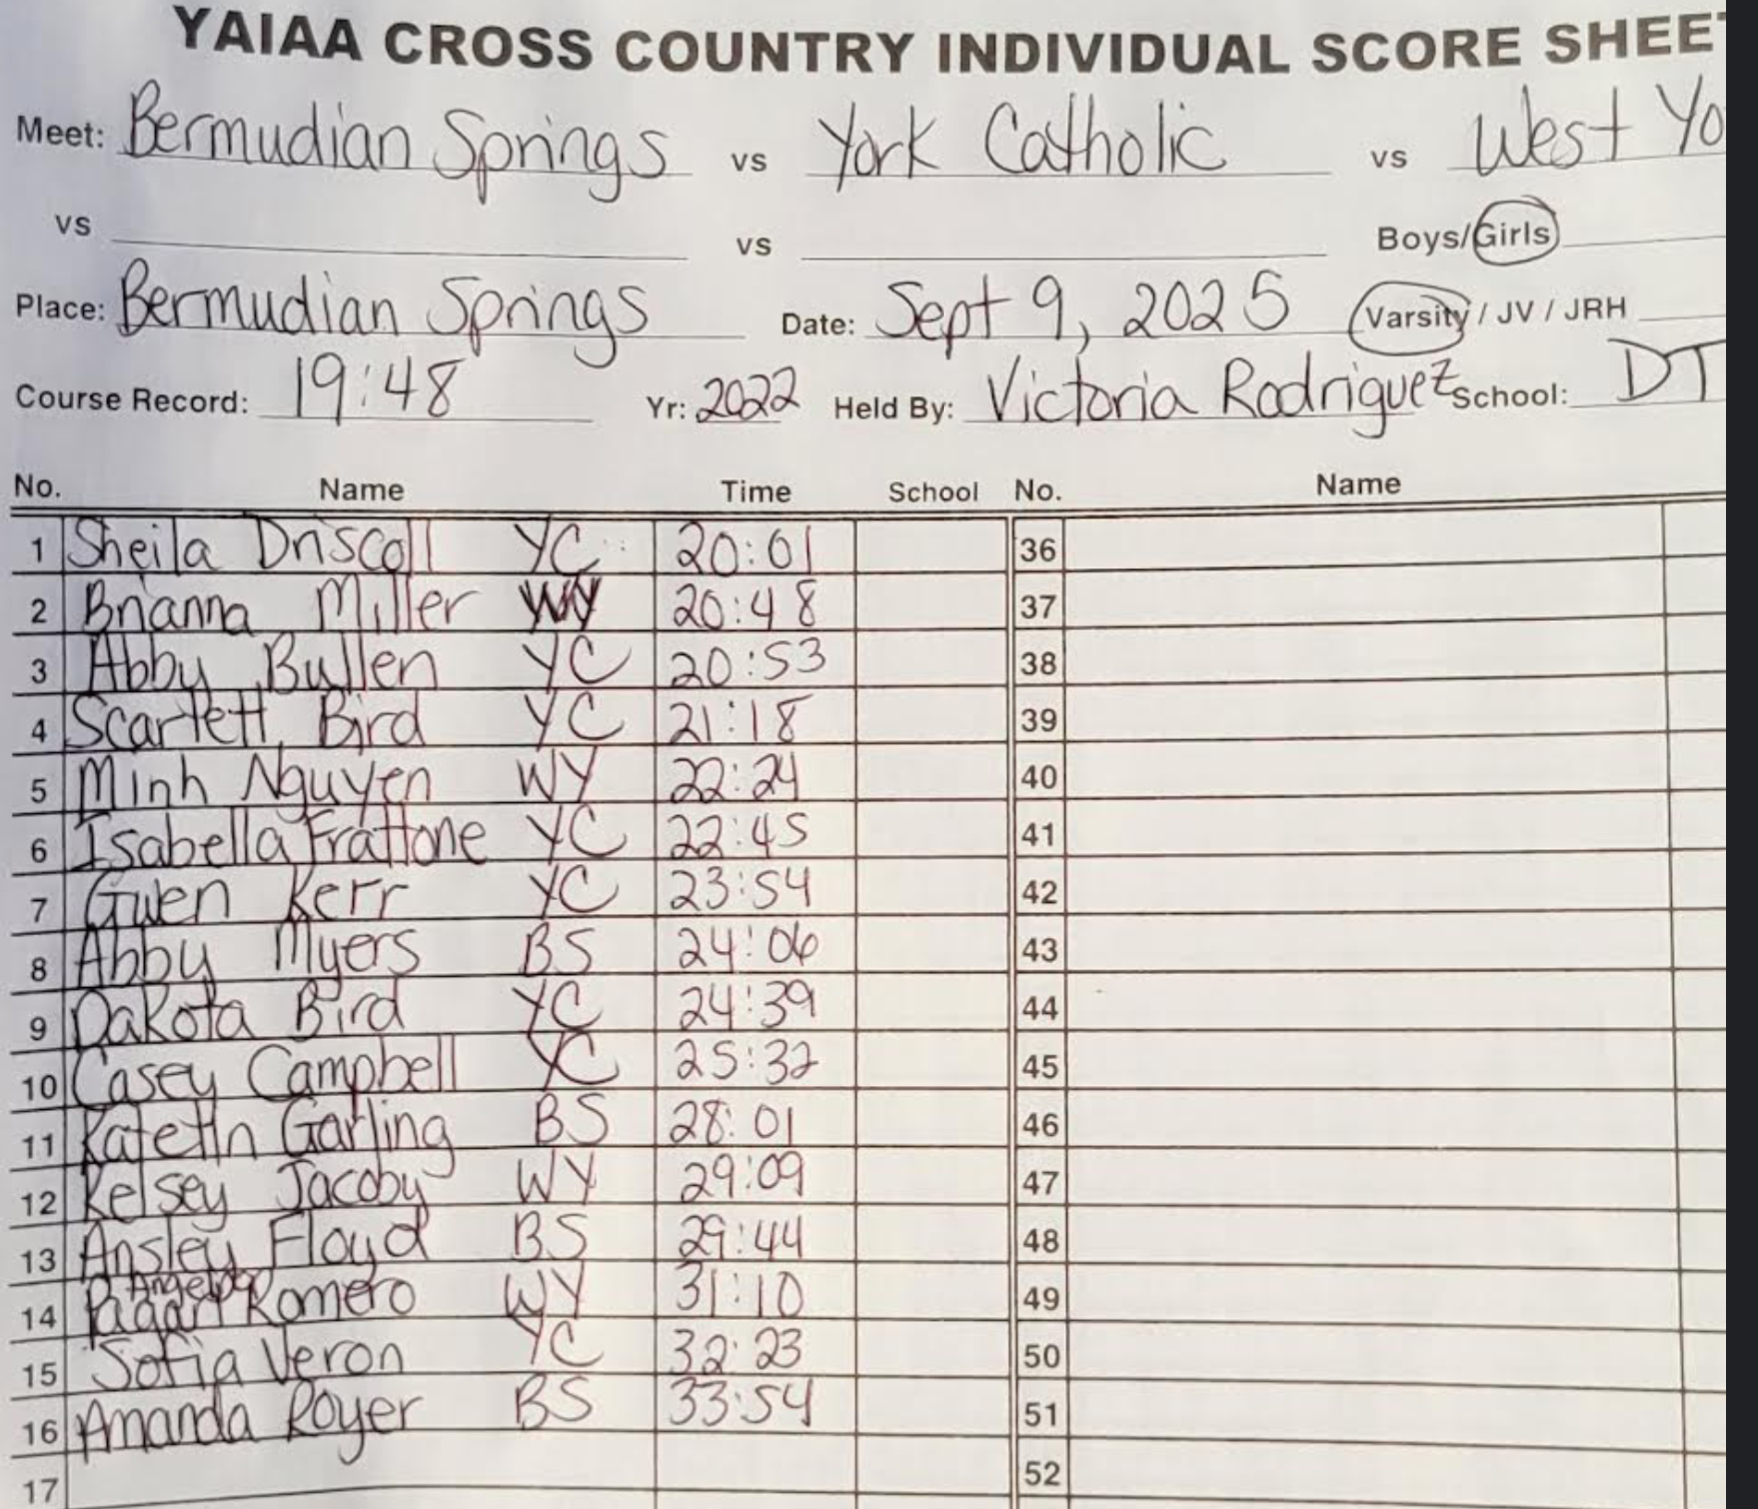 YAIAA CROSS COUNTRY INDIVIDUAL SCORE SHEET
Meet: Bermudian Springs vs York Catholic vs West Yo
vs vs Boys/Girls
Place: Bermudian Springs Date: Sept 9, 2025 Varsity / JV / JRH
Course Record: 19:48 Yr: 2022 Held By: Victoria Rodriguez School: DT
No. Name Time School No. Name
1 Sheila Driscoll YC 20:01 36
2 Brianna Miller WY 20:48 37
3 Abby Bullen YC 20:53 38
4 Scarlett Bird YC 21:18 39
5 Minh Nguyen WY 22:24 40
6 Isabella Frattone YC 22:45 41
7 Gwen Kerr YC 23:54 42
8 Abby Myers BS 24:06 43
9 Dakota Bird YC 24:39 44
10 Casey Campbell YC 25:32 45
11 Katelin Garling BS 28:01 46
12 Kelsey Jacoby WY 29:09 47
13 Ansley Floyd BS 29:44 48
14 Romero WY 31:10 49
15 Sofia Veron YC 32:23 50
16 Amanda Royer BS 33:54 51
17 52